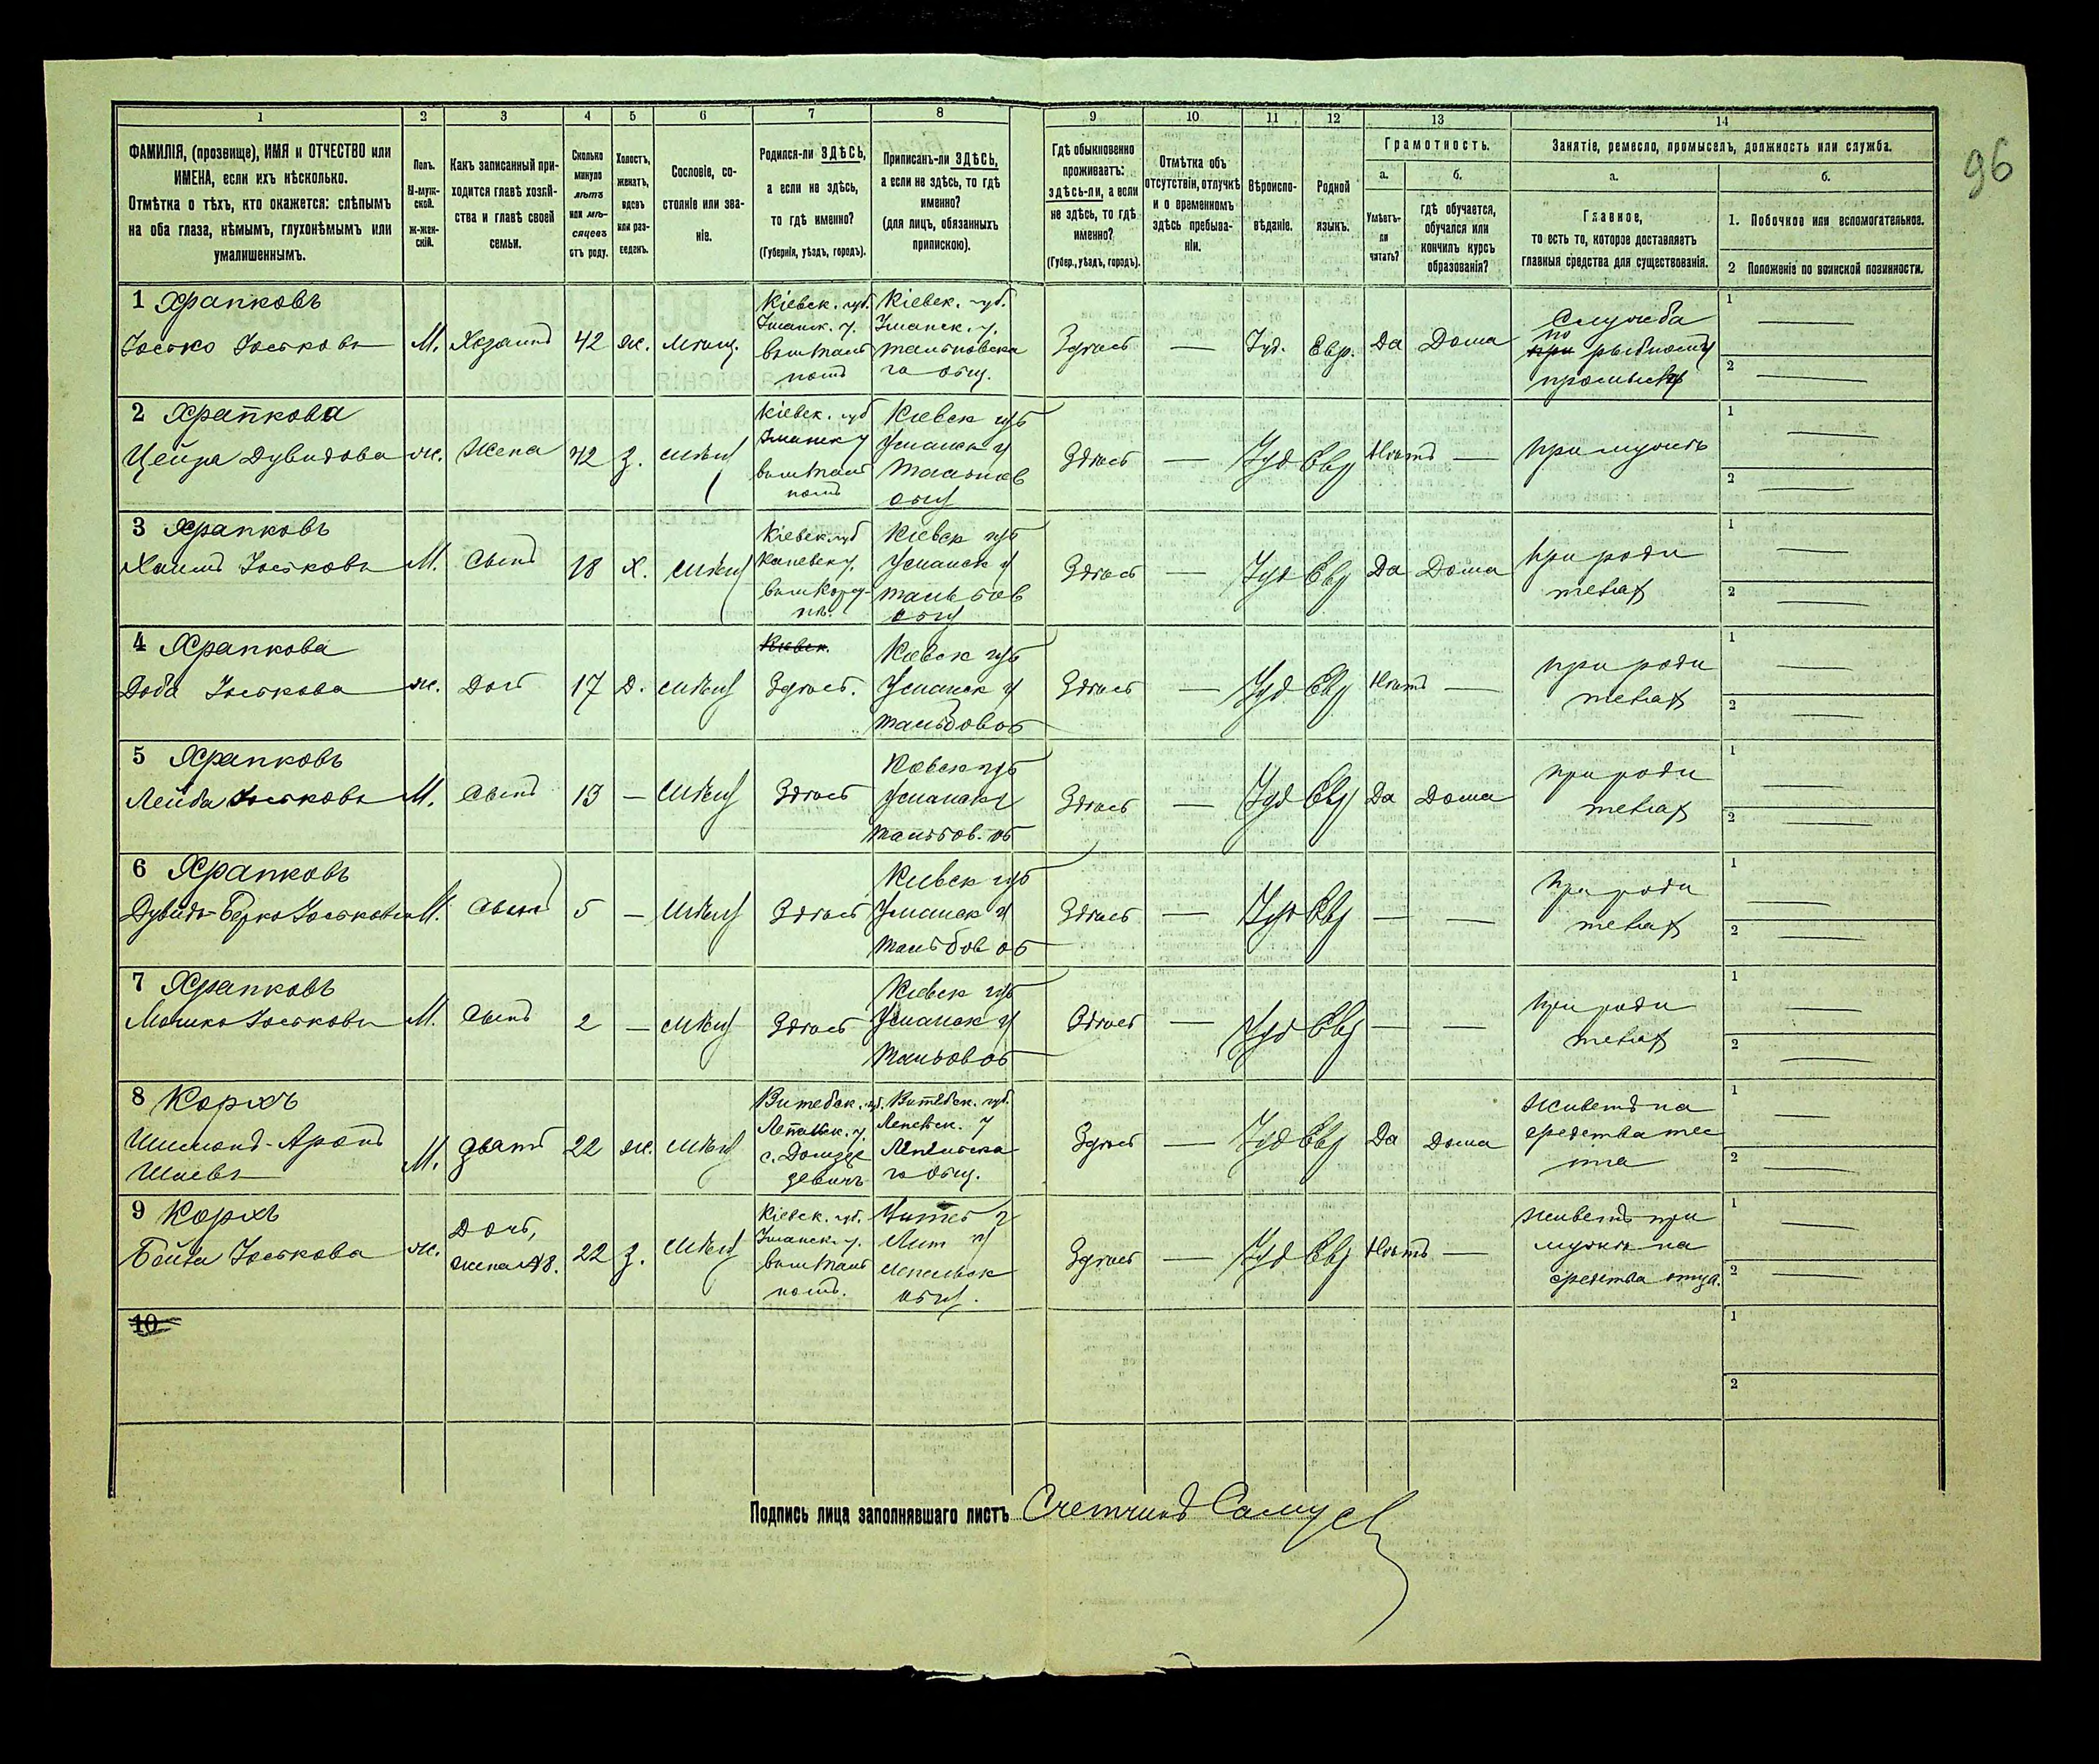 96
1 2 3 4 5 6 7 8 9 10 11 12 13 14
ФАМИЛІЯ, (прозвище), ИМЯ и ОТЧЕСТВО или
ИМЕНА, если ихъ нѣсколько.
Отмѣтка о тѣхъ, кто окажется: слѣпымъ
на оба глаза, нѣмымъ, глухонѣмымъ или
умалишеннымъ.
Полъ.
М-муж-
ской.
Ж-жен-
скій.
Какъ записанный при-
ходится главѣ хозяй-
ства и главѣ своей
семьи.
Сколько
минуло
лѣтъ
или мѣ-
сяцевъ
отъ роду.
Холостъ,
женатъ,
вдовъ
или раз-
веденъ.
Сословіе, со-
стояніе или зва-
ніе.
Родился-ли ЗДѢСЬ,
а если не здѣсь,
то гдѣ именно?
(Губернія, уѣздъ, городъ).
Приписанъ-ли ЗДѢСЬ,
а если не здѣсь, то гдѣ
именно?
(для лицъ, обязанныхъ
припискою).
Гдѣ обыкновенно
проживаетъ:
здѣсь-ли, а если
не здѣсь, то гдѣ
именно?
(Губер., уѣздъ, городъ).
Отмѣтка объ
отсутствіи, отлучкѣ
и о временномъ
здѣсь пребыва-
ніи.
Вѣроиспо-
вѣданіе.
Родной
языкъ.
Грамотность.
а.
Умѣетъ-
ли
читать?
б.
гдѣ обучается,
обучался или
кончилъ курсъ
образованія?
Занятіе, ремесло, промыселъ, должность или служба.
а.
Главное,
то есть то, которое доставляетъ
главныя средства для существованія.
б.
1. Побочное или вспомогательное.
2 Положеніе по воинской повинности.
1 Храпковъ
Іосько Іоськовъ
М.
Хозяинъ
42
ж.
Мѣщ.
Кіевск. губ.
Уманск. у.
Кіевск. губ.
Уманск. у.
Тальновска
го общ.
Здѣсь
—
Іуд.
Евр.
Да
Дома
Служба
по
при рыбному
промыслу
1 —
2 —
2 Храпкова
Цейра Дувидова
ж.
Жена
42
з.
Мѣщ
Кіевск. губ
Уманск у
Кіевск губ
Уманск у
Тальнов
общ
Здѣсь
—
Іуд
Евр
Нѣтъ
—
При мужѣ
1 —
2 —
3 Храпковъ
Хаимъ Іоськовъ
М.
Сынъ
18
Х.
Мѣщ
Кіевск. губ
Каневск у.
Кіевск губ
Уманск у
общ
Здѣсь
—
Іуд
Евр
Да
Дома
При роди
теляхъ
1 —
2 —
4 Храпкова
Доба Іоськова
ж.
Дочь
17
Д.
Мѣщ
Кіевск.
Здѣсь.
Кіевск губ
Уманск у
Здѣсь
—
Іуд
Евр
Нѣтъ
—
При роди
теляхъ
1 —
2 —
5 Храпковъ
Лейба Іоськовъ
М.
Сынъ
13
—
Мѣщ
Здѣсь
Кіевск губ
Уманск у
Здѣсь
—
Іуд
Евр
Да
Дома
При роди
теляхъ
1 —
2 —
6 Храпковъ
Дувидъ-Берко Іоськовъ
М.
Сынъ
5
—
Мѣщ
Здѣсь
Кіевск губ
Уманск у
Здѣсь
—
Іуд
Евр
—
—
При роди
теляхъ
1 —
2 —
7 Храпковъ
Мошко Іоськовъ
М.
Сынъ
2
—
Мѣщ
Здѣсь
Кіевск губ
Уманск у
Здѣсь
—
Іуд
Евр
—
—
При роди
теляхъ
1 —
2 —
8 Корхъ
Шимонъ-Аронъ
Шаевъ
М.
Зять
22
ж.
Мѣщ
Витебск. губ.
Лепельск. у.
Витебск. губ.
Лепельск. у
Лепельска
го общ.
Здѣсь
—
Іуд
Евр
Да
Дома
Живетъ на
средства тес
тя
1 —
2 —
9 Корхъ
Бейла Іоськова
ж.
Дочь,
жена №8.
22
з.
Мѣщ
Кіевск. губ.
Уманск. у.
общ.
Здѣсь
—
Іуд
Евр
Нѣтъ
—
Живетъ при
мужѣ на
средства отца.
1 —
2 —
10
1
2
Подпись лица заполнявшаго листъ Счетчикъ